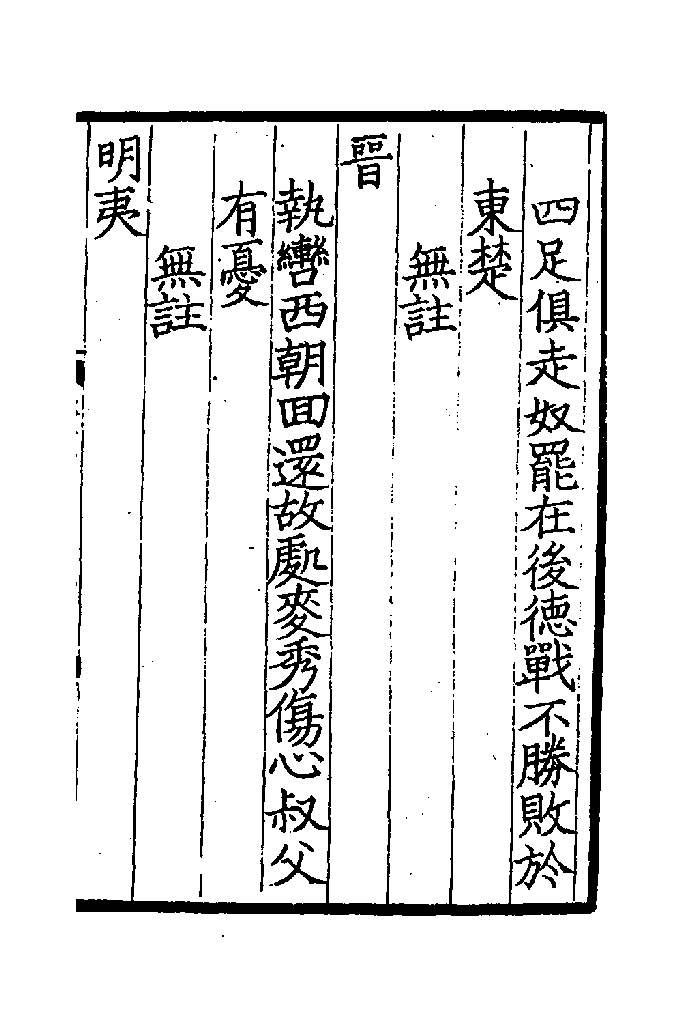 四足俱走奴罷在後德戰不勝敗於
東楚
無註
晉
執轡西朝回還故處麥秀傷心叔父
有憂
無註
明夷